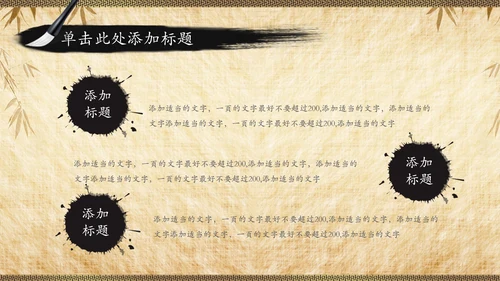 单击此处添加标题
添加
标题
添加适当的文字，一页的文字最好不要超过200,添加适当的文字，添加适当的
文字添加适当的文字，一页的文字最好不要超过200,添加适当的文字
添加适当的文字，一页的文字最好不要超过200,添加适当的文字，添加适当的
文字添加适当的文字，一页的文字最好不要超过200,添加适当的文字
添加
标题
添加
标题
添加适当的文字，一页的文字最好不要超过200,添加适当的文字，添加适当的
文字添加适当的文字，一页的文字最好不要超过200,添加适当的文字